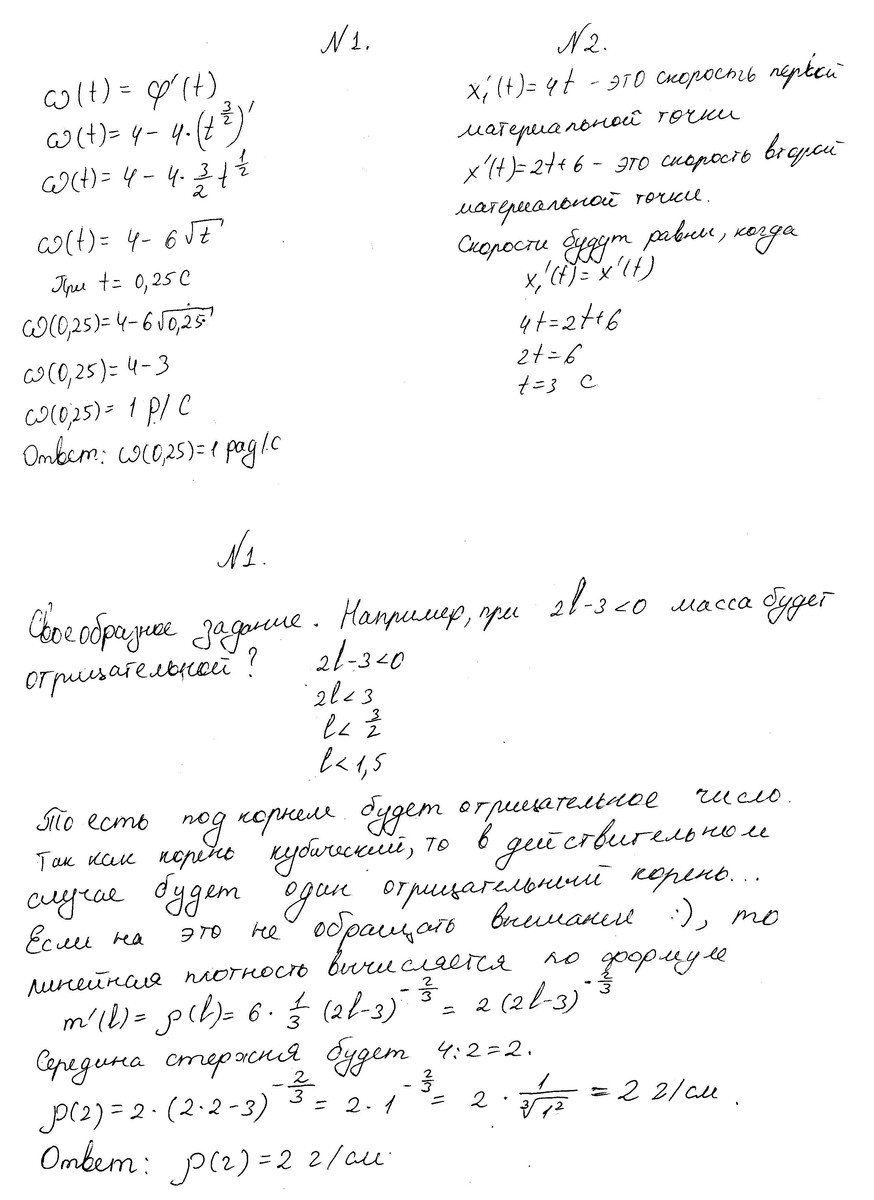 №1.
ω(t) = φ'(t)
ω(t) = 4 - 4·(t^{3/2})'
ω(t) = 4 - 4·3/2 t^{1/2}
ω(t) = 4 - 6√t
При t = 0,25 С
ω(0,25) = 4 - 6√0,25
ω(0,25) = 4 - 3
ω(0,25) = 1 р/с
Ответ: ω(0,25) = 1 рад/с
№2.
x₁'(t) = 4t - это скорость первой
материальной точки
x'(t) = 2t + 6 - это скорость второй
материальной точки.
Скорости будут равны, когда
x₁'(t) = x'(t)
4t = 2t + 6
2t = 6
t = 3 с
№1.
Своеобразное задание. Например, при 2l-3<0 масса будет
отрицательной?
2l-3<0
2l<3
l< 3/2
l<1,5
То есть под корнем будет отрицательное число.
Так как корень кубический, то в действительном
случае будет один отрицательный корень...
Если на это не обращать внимание :), то
линейная плотность вычисляется по формуле
m'(l) = ρ(l) = 6·1/3 (2l-3)^{-2/3} = 2(2l-3)^{-2/3}
Середина стержня будет 4:2=2.
ρ(2) = 2·(2·2-3)^{-2/3} = 2·1^{-2/3} = 2·1/∛1² = 2 г/см.
Ответ: ρ(2) = 2 г/см.